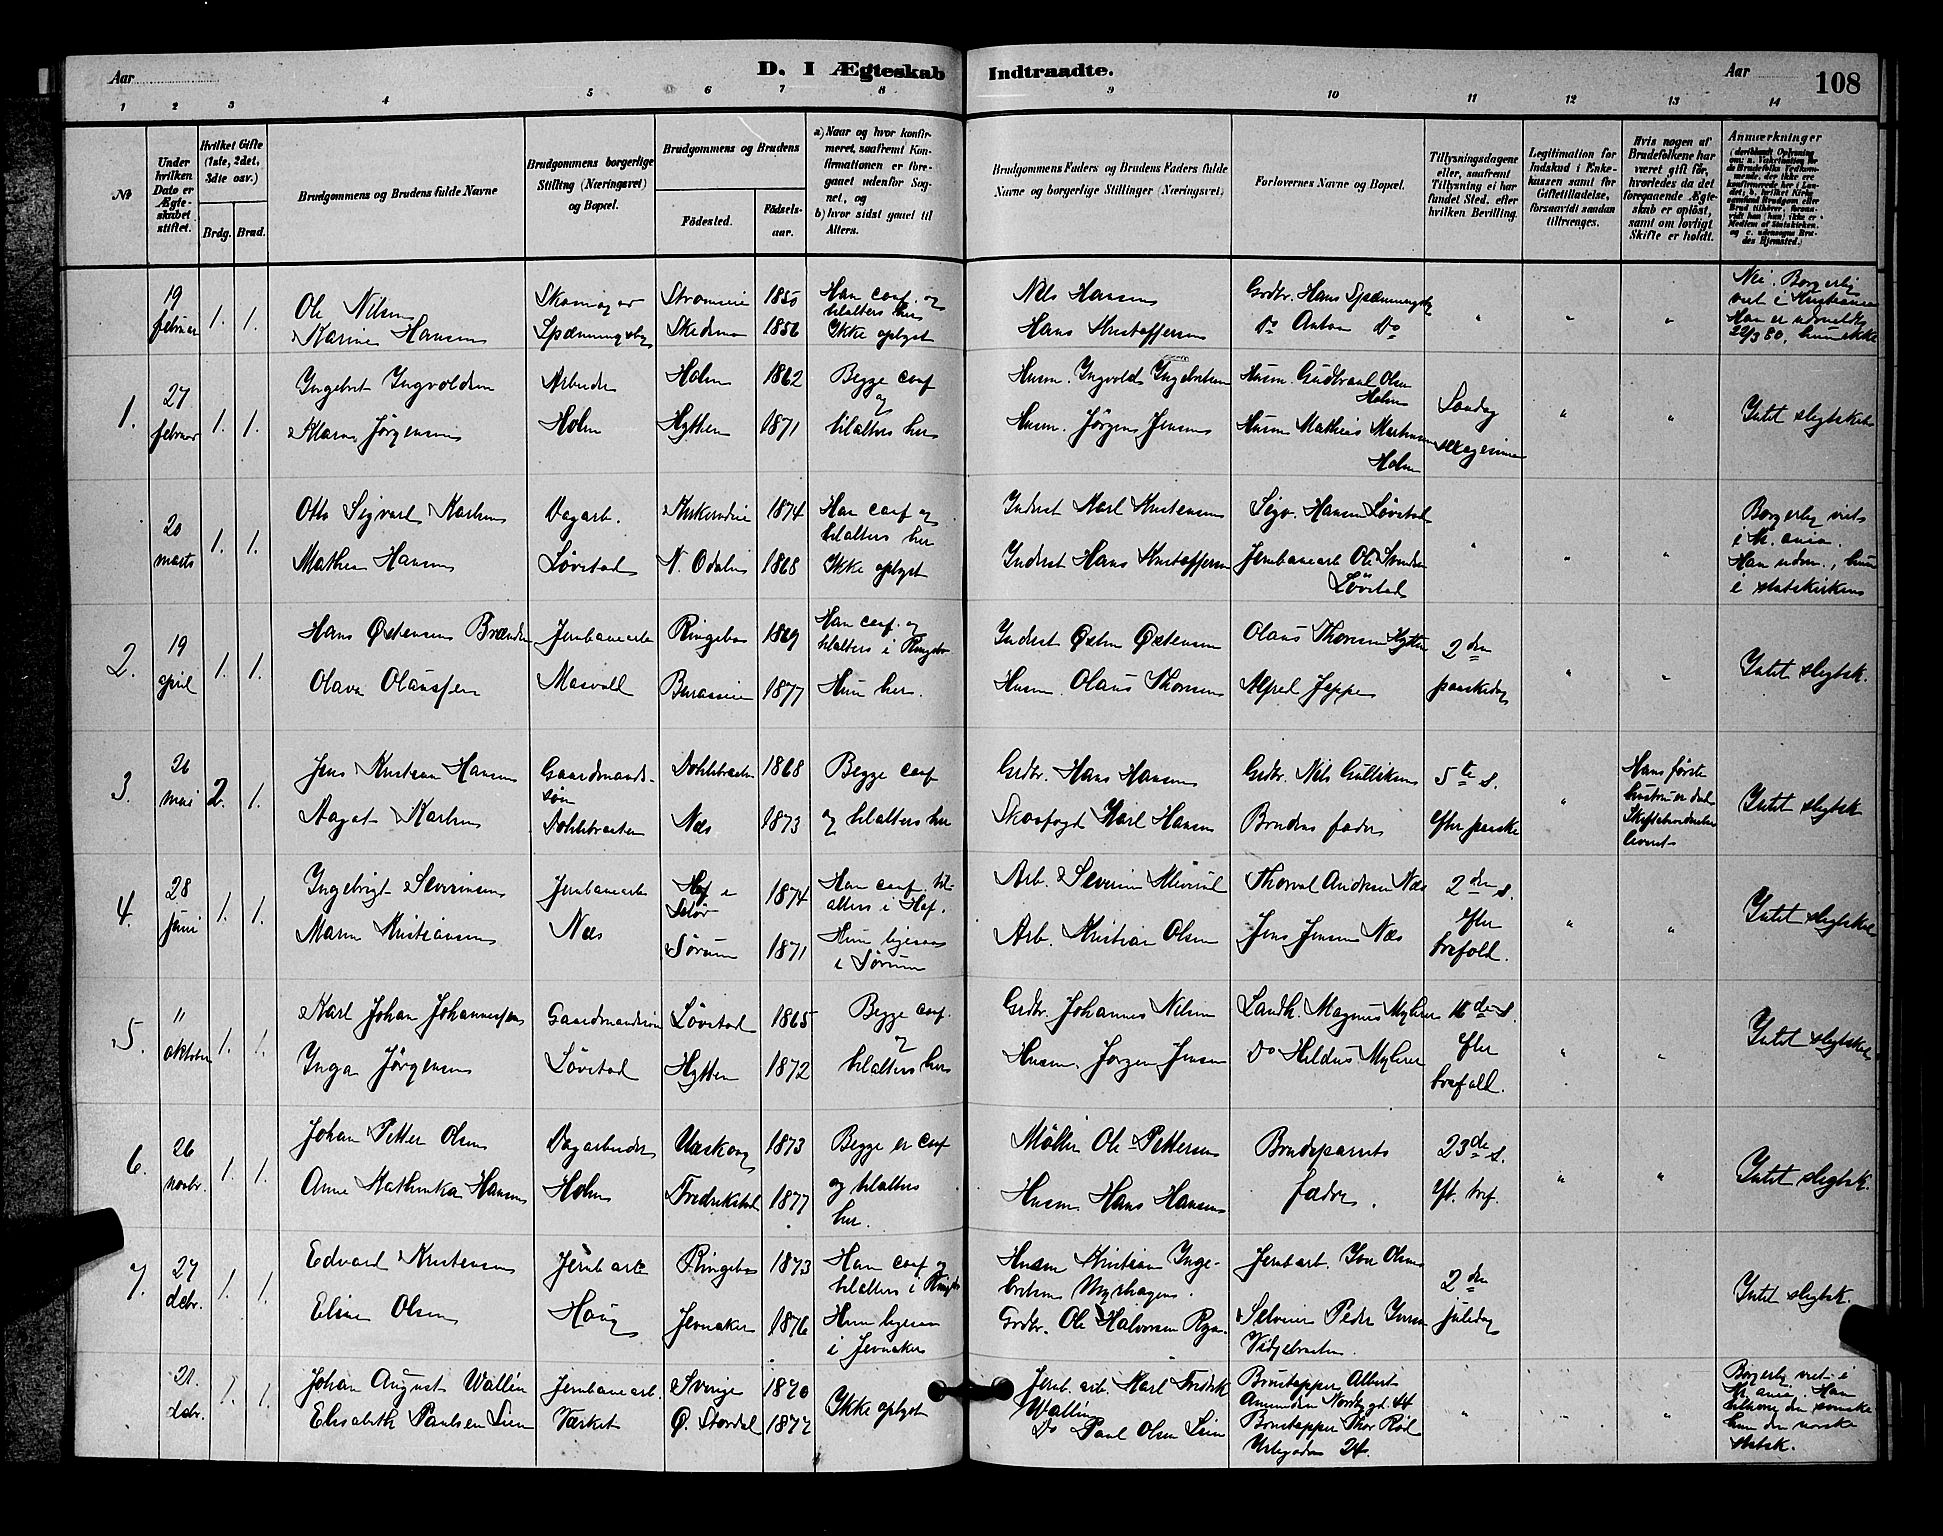 Aar
D. I Ægteskab Indtraadte.
Aar
108
1 2 3 4 5 6 7 8 9 10 11 12 13 14
№
Under hvilken Dato er Ægteskabet stiftet.
Hvilket Gifte (1ste, 2det, 3die osv.)
Brdg. Brud.
Brudgommens og Brudens fulde Navne
Brudgommens borgerlige Stilling (Næringsvei) og Bopæl.
Brudgommens og Brudens
Fødested.
Fødselsaar.
a) Naar og hvor konfirmeret, saafremt Konfirmationen er foregaaet udenfor Sognet, og
b) hvor sidst gaaet til Alters.
Brudgommens Faders og Brudens Faders fulde Navne og borgerlige Stillinger (Næringsvei.)
Forlovernes Navne og Bopæl.
Tillysningsdagene eller, saafremt Tillysning ei har fundet Sted, efter hvilken Bevilling.
Legitimation for Indskud i Enkekassen samt for Giftetilladelse, forsaavidt saadan tiltrænges.
Hvis nogen af Brudefolkene har været gift før, hvorledes da det foregaaende Ægteskab er opløst, samt om lovligt Skifte er holdt.
Anmærkninger
19 februar 1. 1.
Ole Nilsen
Karine Hansen
Skomager
Skedsmo
1850
1856
Han conf. og tilalters her
Ikke oplyst
Nils Hansen
Hans Kristoffersen
Grdbr. Hans
Do Anton Do
Nei. Borgerlig viet i Kristiania
Han er udmeldt 22/3 80, hun ikke
1. 27 februar 1. 1.
Ingebret Ingvoldsen
Karen Jørgensen
Arbeider
Holm
Holm
Hytten
1862
1871
Begge conf og tilalters her
Husm. Ingvold Ingebretsen
Husm. Jørgen Jensen
Husm. Gudbrand Olsen Holm
Husm Mathias Martinsen Holm
Søndag sexagesima
Intet slegtskab
20 marts 1. 1.
Otto Sigvart Karlsen
Mathea Hansen
Dagarb.
Løvstad
N. Odalen
1874
1868
Han conf og tilalters her
Ikke oplyst
Inderst Karl Kristensen
Inderst Hans Kristoffersen
Sigv. Hansen Løvstad
Jernbanearb Ole Løvstad
Borgerlig viet i Kr.ania.
Han udm., hun i statskirken
2. 19 april 1. 1.
Hans Østensen Brænden
Olava Olaussen
Jernbanearb
Ringebo
1869
1877
Han conf. og tilalters i Ringebo
Hun her.
Inderst Østen Østensen
Husm. Olaus Thorsen
Olaus Thorsen Hytten
Alfred Jeppe
2den paaskedag
Intet slegtsk.
3. 26 mai 2. 1.
Jens Kristian Hansen
Aagot Karlsen
Gaardmandssøn
Dohlebraaten
Dohlebraaten
Næs
1868
1873
Begge conf og tilalters her
Grdbr. Hans Hansen
Skogfogd Karl Hansen
Grdbr. Nils Gulliksen
Brudens fader
5te s. efter paaske
Hans første hustru er død
Intet slegtsk
4. 28 juni 1. 1.
Ingebrigt Severinsen
Maren Kristiansen
Jernbanearb
Næs
Hof i Solør
Sørum
1874
1871
Han conf. tilalters i Hof.
Hun ligesaa i Sørum
Arb. Severin
Arb. Kristian Olsen
Thorval Andersen Næs
Jens Jensen Næs
2den s. efter trefold.
Intet slegtskab
5. 11 oktober 1. 1.
Karl Johan Johannessen
Inga Jørgensen
Gaardmandssøn
Løvstad
Løvstad
Hytten
1865
1872
Begge conf. og tilalters her
Grdbr. Johannes Nilsen
Husm. Jørgen Jensen
Landh. Magnus Myhrer
Do Hildus Myhrer
16de s. efter trefold.
Intet slegtskab
6. 26 novbr. 1. 1.
Johan Petter Olsen
Anne Kathinka Hansen
Dagarbeider
Holm
Urskoug
Fredrikstad
1873
1877
Begge er conf og tilalters her.
Møller Ole Pettersen
Husm Hans Hansen
Brudeparrets fædre.
23de s. eft. tref.
Intet slegtsk.
7. 27 debr. 1. 1.
Edvard Kristensen
Elise Olsen
Jernb arb
Houg
Ringebo
Jevnaker
1873
1876
Han conf og tilalters i Ringebo
Hun ligesaa i Jevnaker
Husm Kristian Ingebretsen Myrhagen.
Grdbr. Ole Halvorsen
Jernb arb. Iver Olsen
Selveier Peder Iversen
2den juledag
Intet slegtsk.
21. debr. 1. 1.
Johan August Wallén
Elisabeth Paulsen Lien
Jernbanearb.
Værket
Sverige
Ø. Stordal
1870
1877
Ikke oplyst
Jernb. arb. Karl Fredrik Wallén
Do Paul Olsen Lien
Brustapper Albert Amundsen Nordbygd. 44
Brustapper Thor Rød
Urtegaden 24.
Borgerlig viet i Kr.ania. Han tilhører den svenske hun den norske statsk.